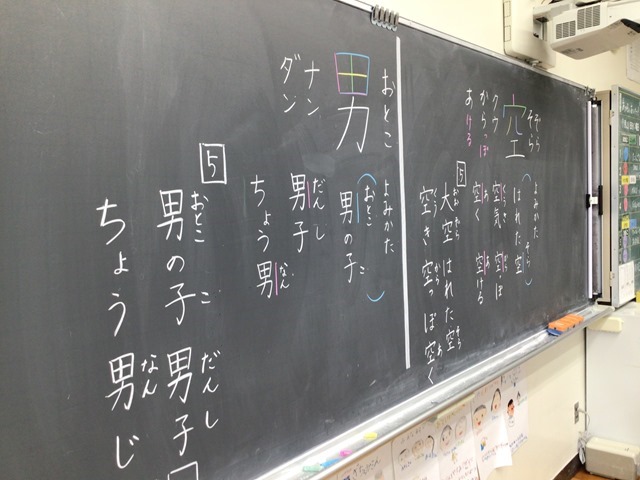 ぞら
そら
空
クウ
からっぽ
あける
よみかた
はれた空(そら)
空気 空っぽ
空く 空ける
5
大空 はれた空
空き 空っぽ 空く
おとこ
男
ナン
ダン
よみかた
男の子(おとこ こ)
男子(だんし)
ちょう男(なん)
5
男の子(おとこ こ) 男子(だんし)
ちょう男(なん)じ